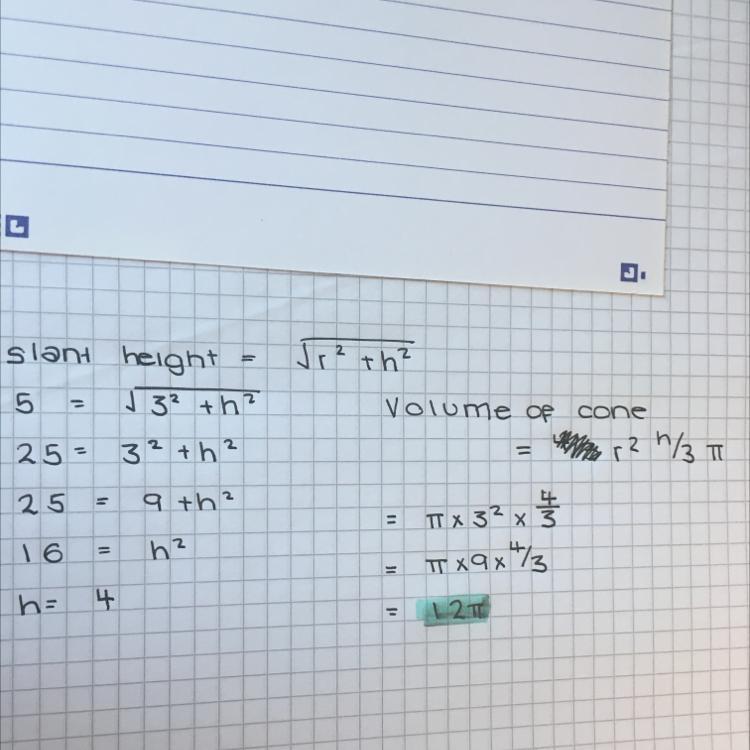 slant height = √r² + h²
5 = √3² + h²
25 = 3² + h²
25 = 9 + h²
16 = h²
h = 4
Volume of cone
= r² h/3 π
= π x 3² x 4/3
= π x 9 x 4/3
= 12π